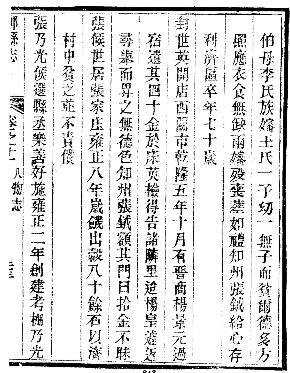 伯母李氏族嫠王氏一子幼一無子而貧爾德多方
照應衣食無缺兩嫠歿喪塟如禮知州張鉞給心存
利濟匾卒年七十歲
封世英開店西關市乾隆五年十月有晋商楊景元過
宿遺其四十金於床英檢得告諸隣里迨楊皇遽返
尋舉而畀之無德色知州張鉞額其門曰拾金不昧
張候世居張家庄雍正八年歲饑出穀八十餘石以濟
村中貧乏並不責償
張乃光候選縣丞樂善好施雍正二年創建考棚乃光
縣志
人物志